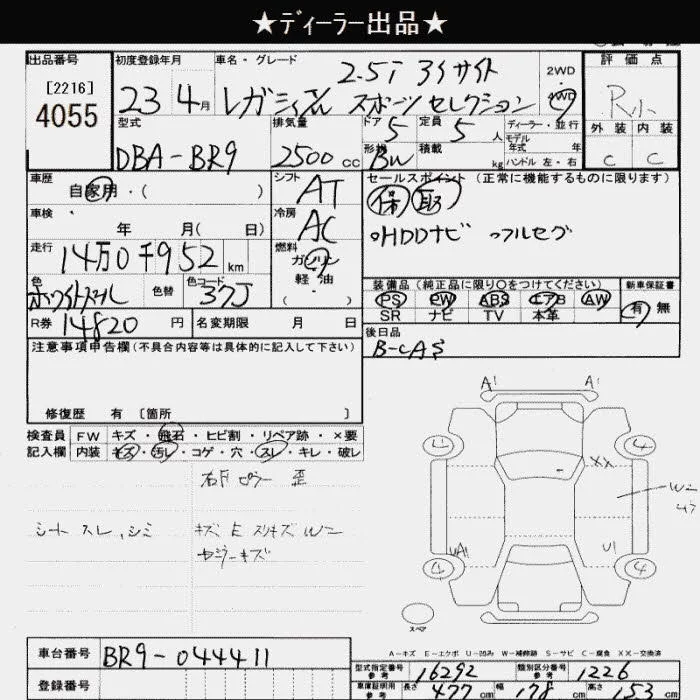 ★ディーラー出品★
出品番号 初度登録年月 車名・グレード 評価点
[2216]
4055
23 4月
2.5i アイサイト
レガシィ スポーツセレクション
2WD
4WD
R小
外装 内装
C C
型式 排気量 ドア 定員 ディーラー・並行
DBA-BR9 2500cc 5 5人 モデル年式 年
形状 積載 kg ハンドル 左・右
BW
車歴 シフト セールスポイント (正常に機能するものに限ります)
自家用・( ) AT 保 取
車検 冷房
年 月( 日) AC
・HDDナビ ・フルセグ
走行 燃料
14万0千952km ガソリン
軽油
( )
色 色替 色コード
ホワイトパール 37J
装備品 (純正品に限り○をつけてください) 新車保証書
PS PW ABS エアB AW 有 無
SR ナビ TV 本革
R券 14820円 名変期限 月 日
後日品
B-CAS
注意事項申告欄(不具合内容等は具体的に記入して下さい)
修復歴 有 〔箇所 〕
検査員 FW キズ・飛石・ヒビ割・リペア跡・×要
記入欄 内装 キズ・汚レ・コゲ・穴・スレ・キレ・破レ
右Fピラー 歪
シート スレ、シミ キズ E スリキズ W2
A1 A1
4 4
XX
W2
UA1 U1
4 4
スペア
A-キズ E-エクボ U-凹み W-補修跡 S-サビ C-腐食 XX-交換済
車台番号 BR9-044411
登録番号
型式指定番号 参考 16292 類別区分番号 参考 1226
車庫証明用 参考 長さ 477cm 幅 178cm 高さ 153cm